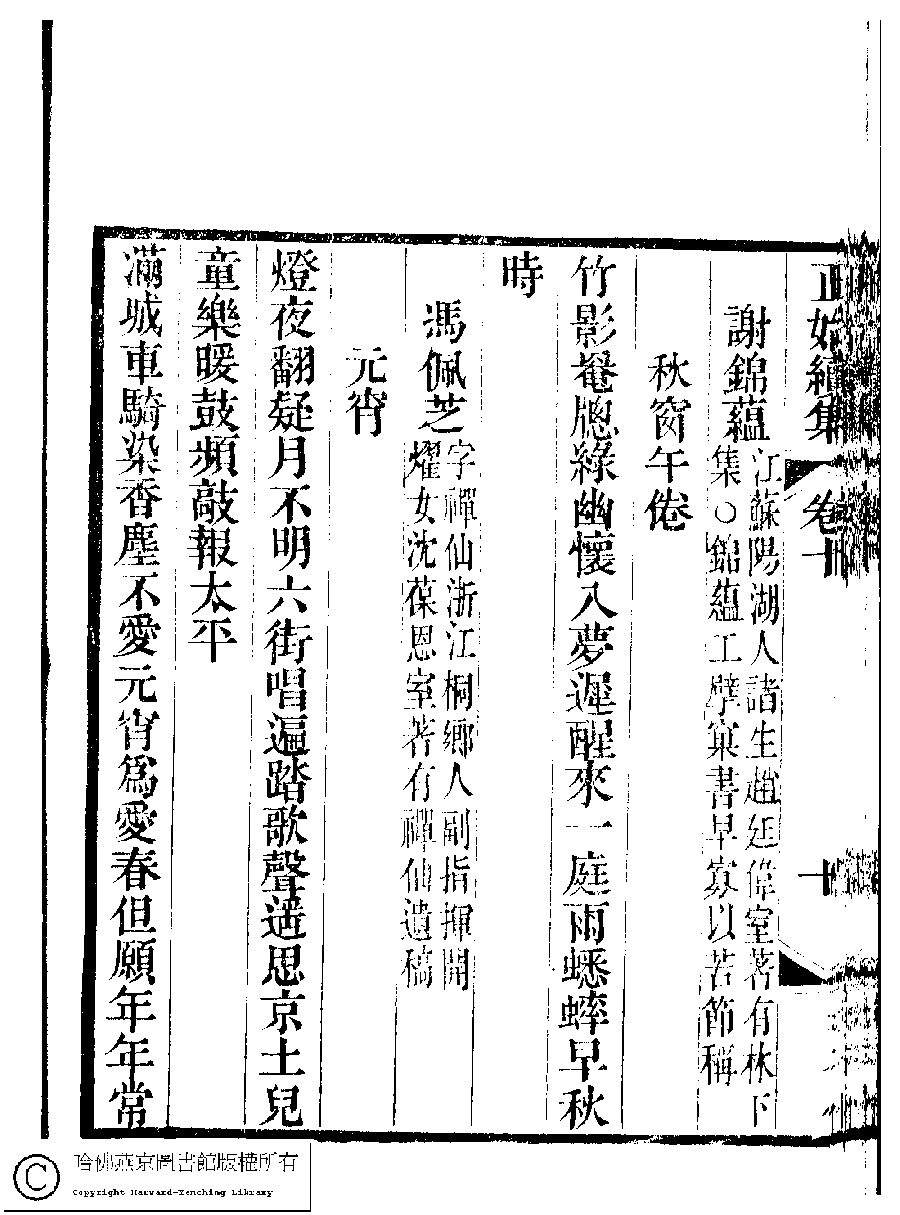 正始續集 卷十 十
謝錦蘊 江蘇陽湖人諸生趙廷偉室著有林下
集○錦蘊工擘窠書早寡以苦節稱
秋窗午倦
竹影罨牎綠幽懷入夢遲醒來一庭雨蟋蟀早秋
時
馮佩芝 字禪仙浙江桐鄉人副指揮開
燿女沈葆恩室著有禪仙遺稿
元宵
燈夜翻疑月不明六街唱遍踏歌聲遥思京土兒
童樂暖鼓頻敲報太平
滿城車騎染香塵不愛元宵為愛春但願年年常
哈佛燕京圖書館版權所有
Copyright Harvard-Yenching Library